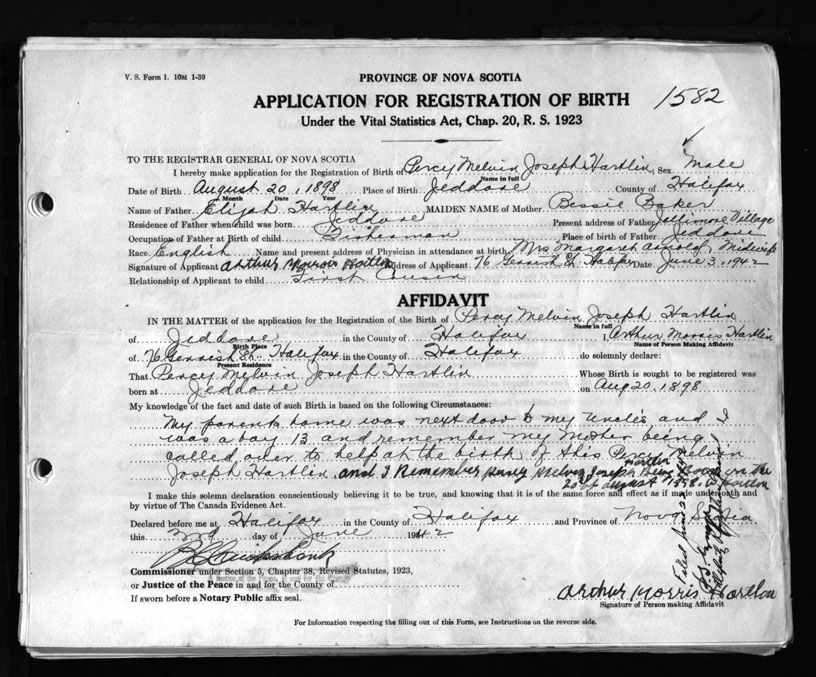 V. S. Form 1. 10M 1-39
PROVINCE OF NOVA SCOTIA
APPLICATION FOR REGISTRATION OF BIRTH 1582
Under the Vital Statistics Act, Chap. 20, R. S. 1923
TO THE REGISTRAR GENERAL OF NOVA SCOTIA
I hereby make application for the Registration of Birth of Percy Melvin Joseph Hartlin, Sex Male
Name in full
Date of Birth August 20, 1898 Place of Birth Jeddore County of Halifax
Month Date Year
Name of Father Elijah Hartlin MAIDEN NAME of Mother Bessie Baker
Residence of Father when child was born Jeddore Present address of Father Jollimore Village
Occupation of Father at Birth of child Fisherman Place of birth of Father Jeddore
Race English Name and present address of Physician in attendance at birth Mrs Margaret Midwife
Signature of Applicant Arthur Morris Hartlin Address of Applicant 76 Gerrish St Halifax Date June 3, 1942
Relationship of Applicant to child First Cousin
AFFIDAVIT
IN THE MATTER of the application for the Registration of the Birth of Percy Melvin Joseph Hartlin
Name in full
of Jeddore in the County of Halifax I, Arthur Morris Hartlin
Birth Place Name of Person Making Affidavit
of 76 Gerrish St. Halifax in the County of Halifax do solemnly declare:
Present Residence
That Percy Melvin Joseph Hartlin Whose Birth is sought to be registered was
born at Jeddore on Aug 20, 1898
My knowledge of the fact and date of such Birth is based on the following Circumstances:
My parents home was next door to my Uncle's and I
was a boy 13 and remember my Mother being
called over to help at the birth of this Percy Melvin
Joseph Hartlin, and I Remember percy Melvin Joseph Hartlin being Born on the
20 of august 1898.
I make this solemn declaration conscientiously believing it to be true, and knowing that it is of the same force and effect as if made under oath and
by virtue of The Canada Evidence Act.
Declared before me at Halifax in the County of Halifax and Province of Nova Scotia
this 3rd day of June 1942
Commissioner under Section 5, Chapter 38, Revised Statutes, 1923,
or Justice of the Peace in and for the County of
If sworn before a Notary Public affix seal.
Arthur Morris Hartlin
Signature of Person making Affidavit
For Information respecting the filling out of this Form, see Instructions on the reverse side.